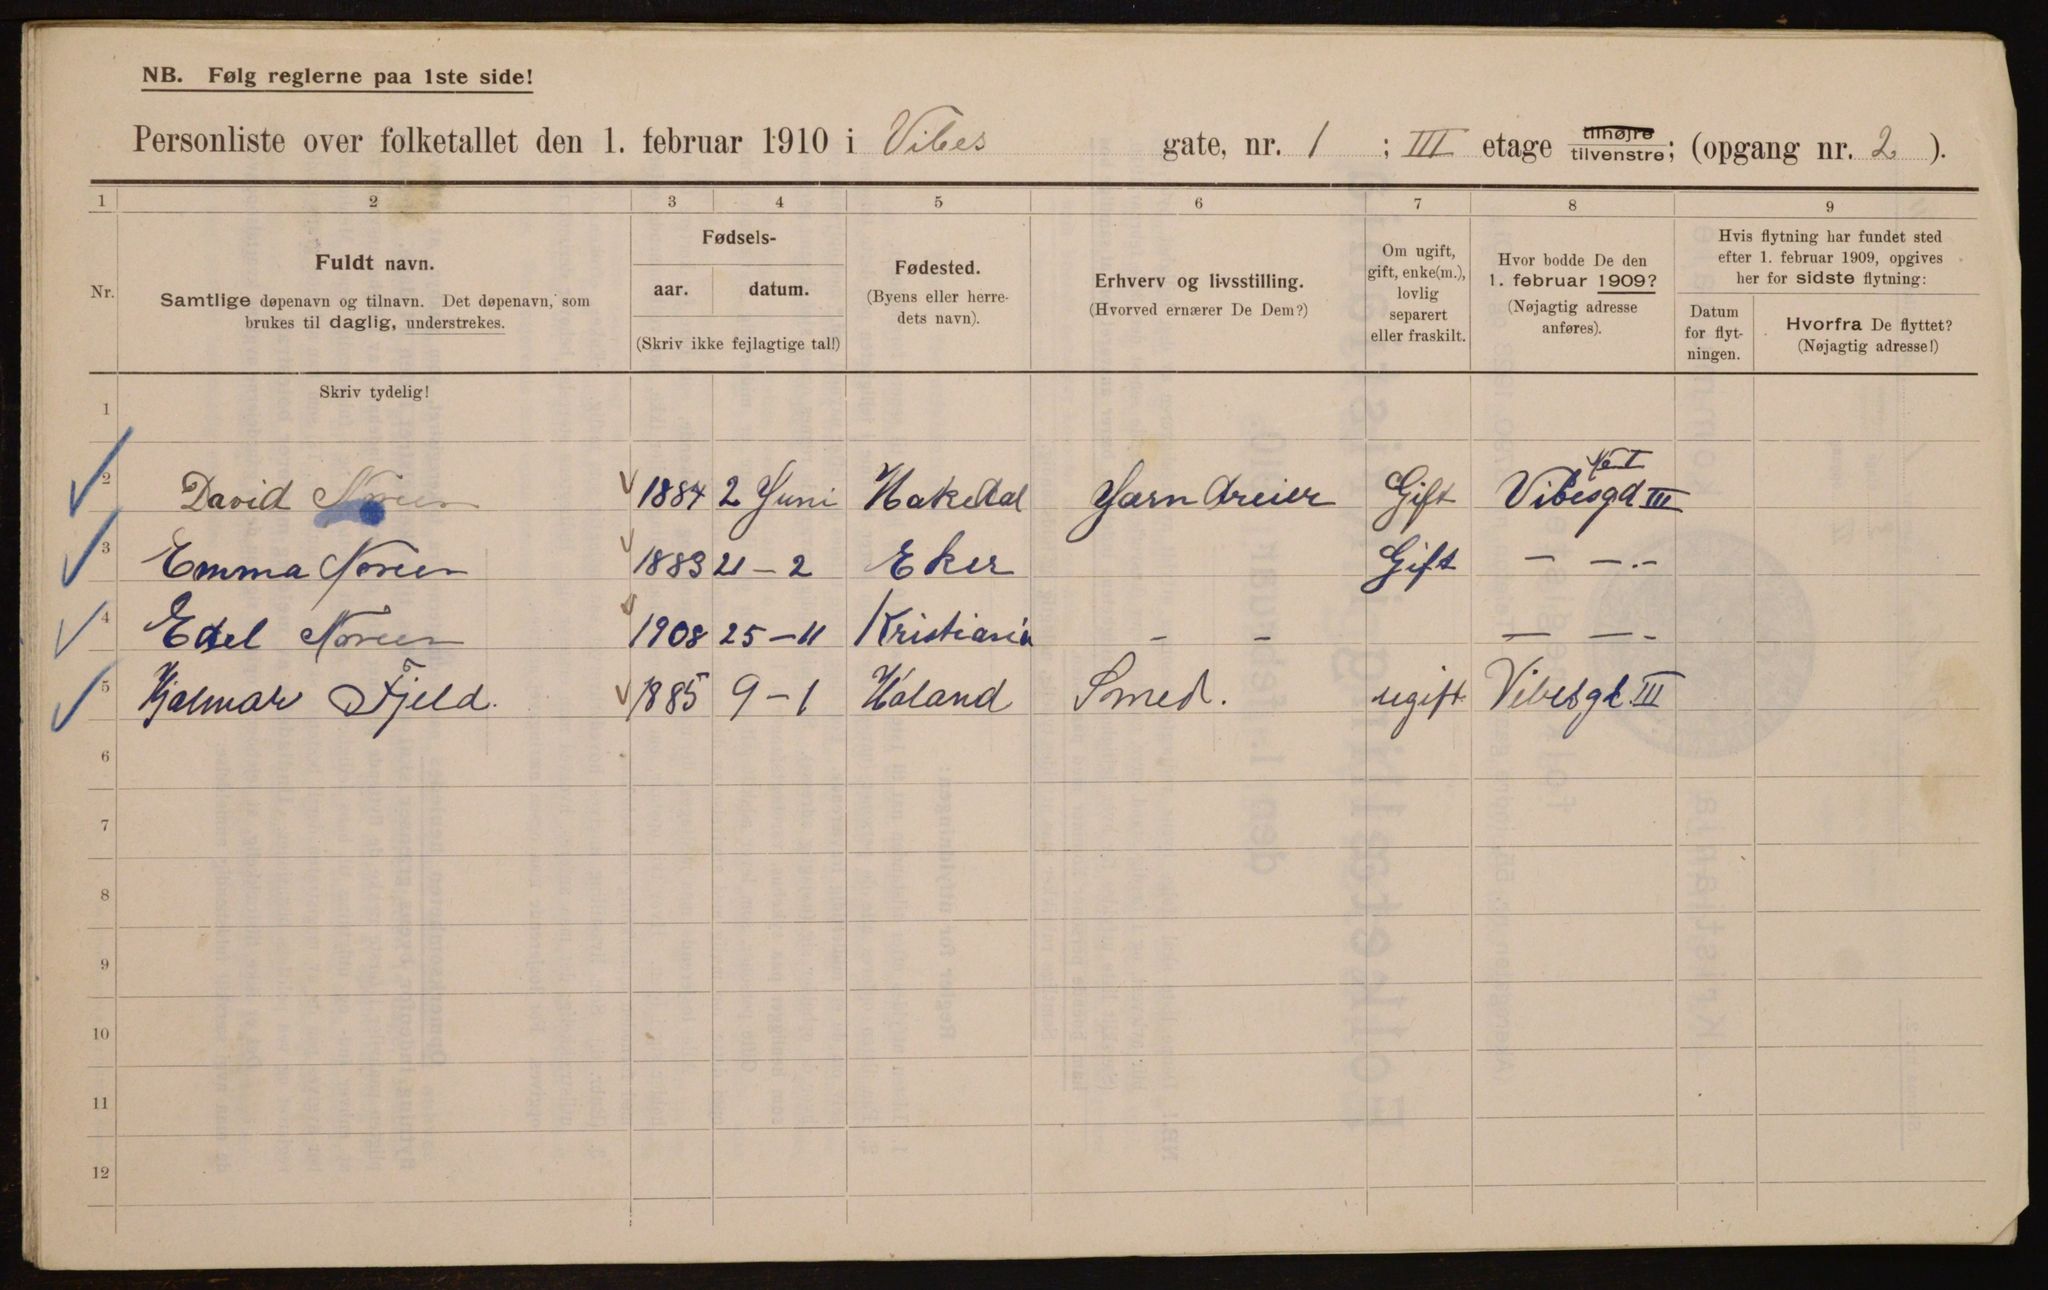 NB. Følg reglerne paa 1ste side!
Personliste over folketallet den 1. februar 1910 i Vibes gate, nr. 1 ; III etage tilhøjre tilvenstre; (opgang nr. 2 ).
1 2 3 4 5 6 7 8 9
Nr.
Fuldt navn.
Samtlige døpenavn og tilnavn. Det døpenavn, som
brukes til daglig, understrekes.
Fødsels-
aar. datum.
(Skriv ikke fejlagtige tal!)
Fødested.
(Byens eller herre-
dets navn).
Erhverv og livsstilling.
(Hvorved ernærer De Dem?)
Om ugift,
gift, enke(m.),
lovlig
separert
eller fraskilt.
Hvor bodde De den
1. februar 1909?
(Nøjagtig adresse
anføres).
Hvis flytning har fundet sted
efter 1. februar 1909, opgives
her for sidste flytning:
Datum
for flyt-
ningen.
Hvorfra De flyttet?
(Nøjagtig adresse!)
Skriv tydelig!
1
2 David Noreen 1884 2 Juni Hakedal Jærn dreier Gift Vibesgd III
3 Emma Noreen 1883 21 - 2 Eker Gift - - . -
4 Edel Noreen 1908 25 - 11 Kristiania - - - - -
5 Hjalmar Fjeld. 1885 9 - 1 Holand Smed. ugift Vibesgt. III
6
7
8
9
10
11
12